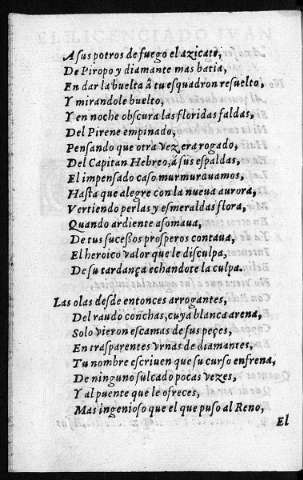 A sus potros de fuego el azicate,
De Piropo y diamante mas batia,
En dar la buelta â tu esquadron resuelto,
Y mirandole buelto,
Y en noche obscura las floridas faldas,
Del Pirene empinado,
Pensando que otra vez era rogado,
Del Capitan Hebreo, á sus espaldas,
El impensado caso murmurauamos,
Hasta que alegre con la nueua aurora,
Vertiendo perlas y esmeraldas flora,
Quando ardiente asomaua,
De tus sucessos prosperos contaua,
El heroico valor que le disculpa,
De su tardança echandote la culpa.
Las olas desde entonces arrogantes,
Del raudo conchas, cuya blanca arena,
Solo vieron escamas de sus peçes,
En trasparentes vrnas de diamantes,
Tu nombre escriuen que su curso enfrena,
De ninguno sulcado pocas vezes,
Y al puente que le ofreces,
Mas ingenioso que el que puso al Reno,
El